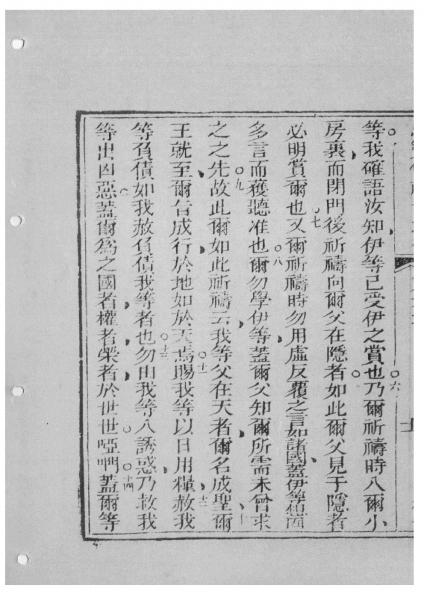 等我確語汝知伊等已受伊之賞也六乃爾祈禱時入爾小
房裏而閉門後祈禱向爾父在隱者如此爾父見于隱者
必明賞爾也七又爾祈禱時勿用虛反覆之言如諸國蓋伊等想因
多言而獲聽准也八爾勿學伊等蓋爾父知爾所需未曾求
之之先九故此爾如此祈禱云我等父在天者爾名成聖十爾
王就至爾旨成行於地如於天焉十一賜我等以日用糧十二赦我
等負債如我赦負債我等者也十三勿由我等入誘惑乃救我
等出凶惡蓋爾為之國者權者榮者於世世啞們十四蓋爾等